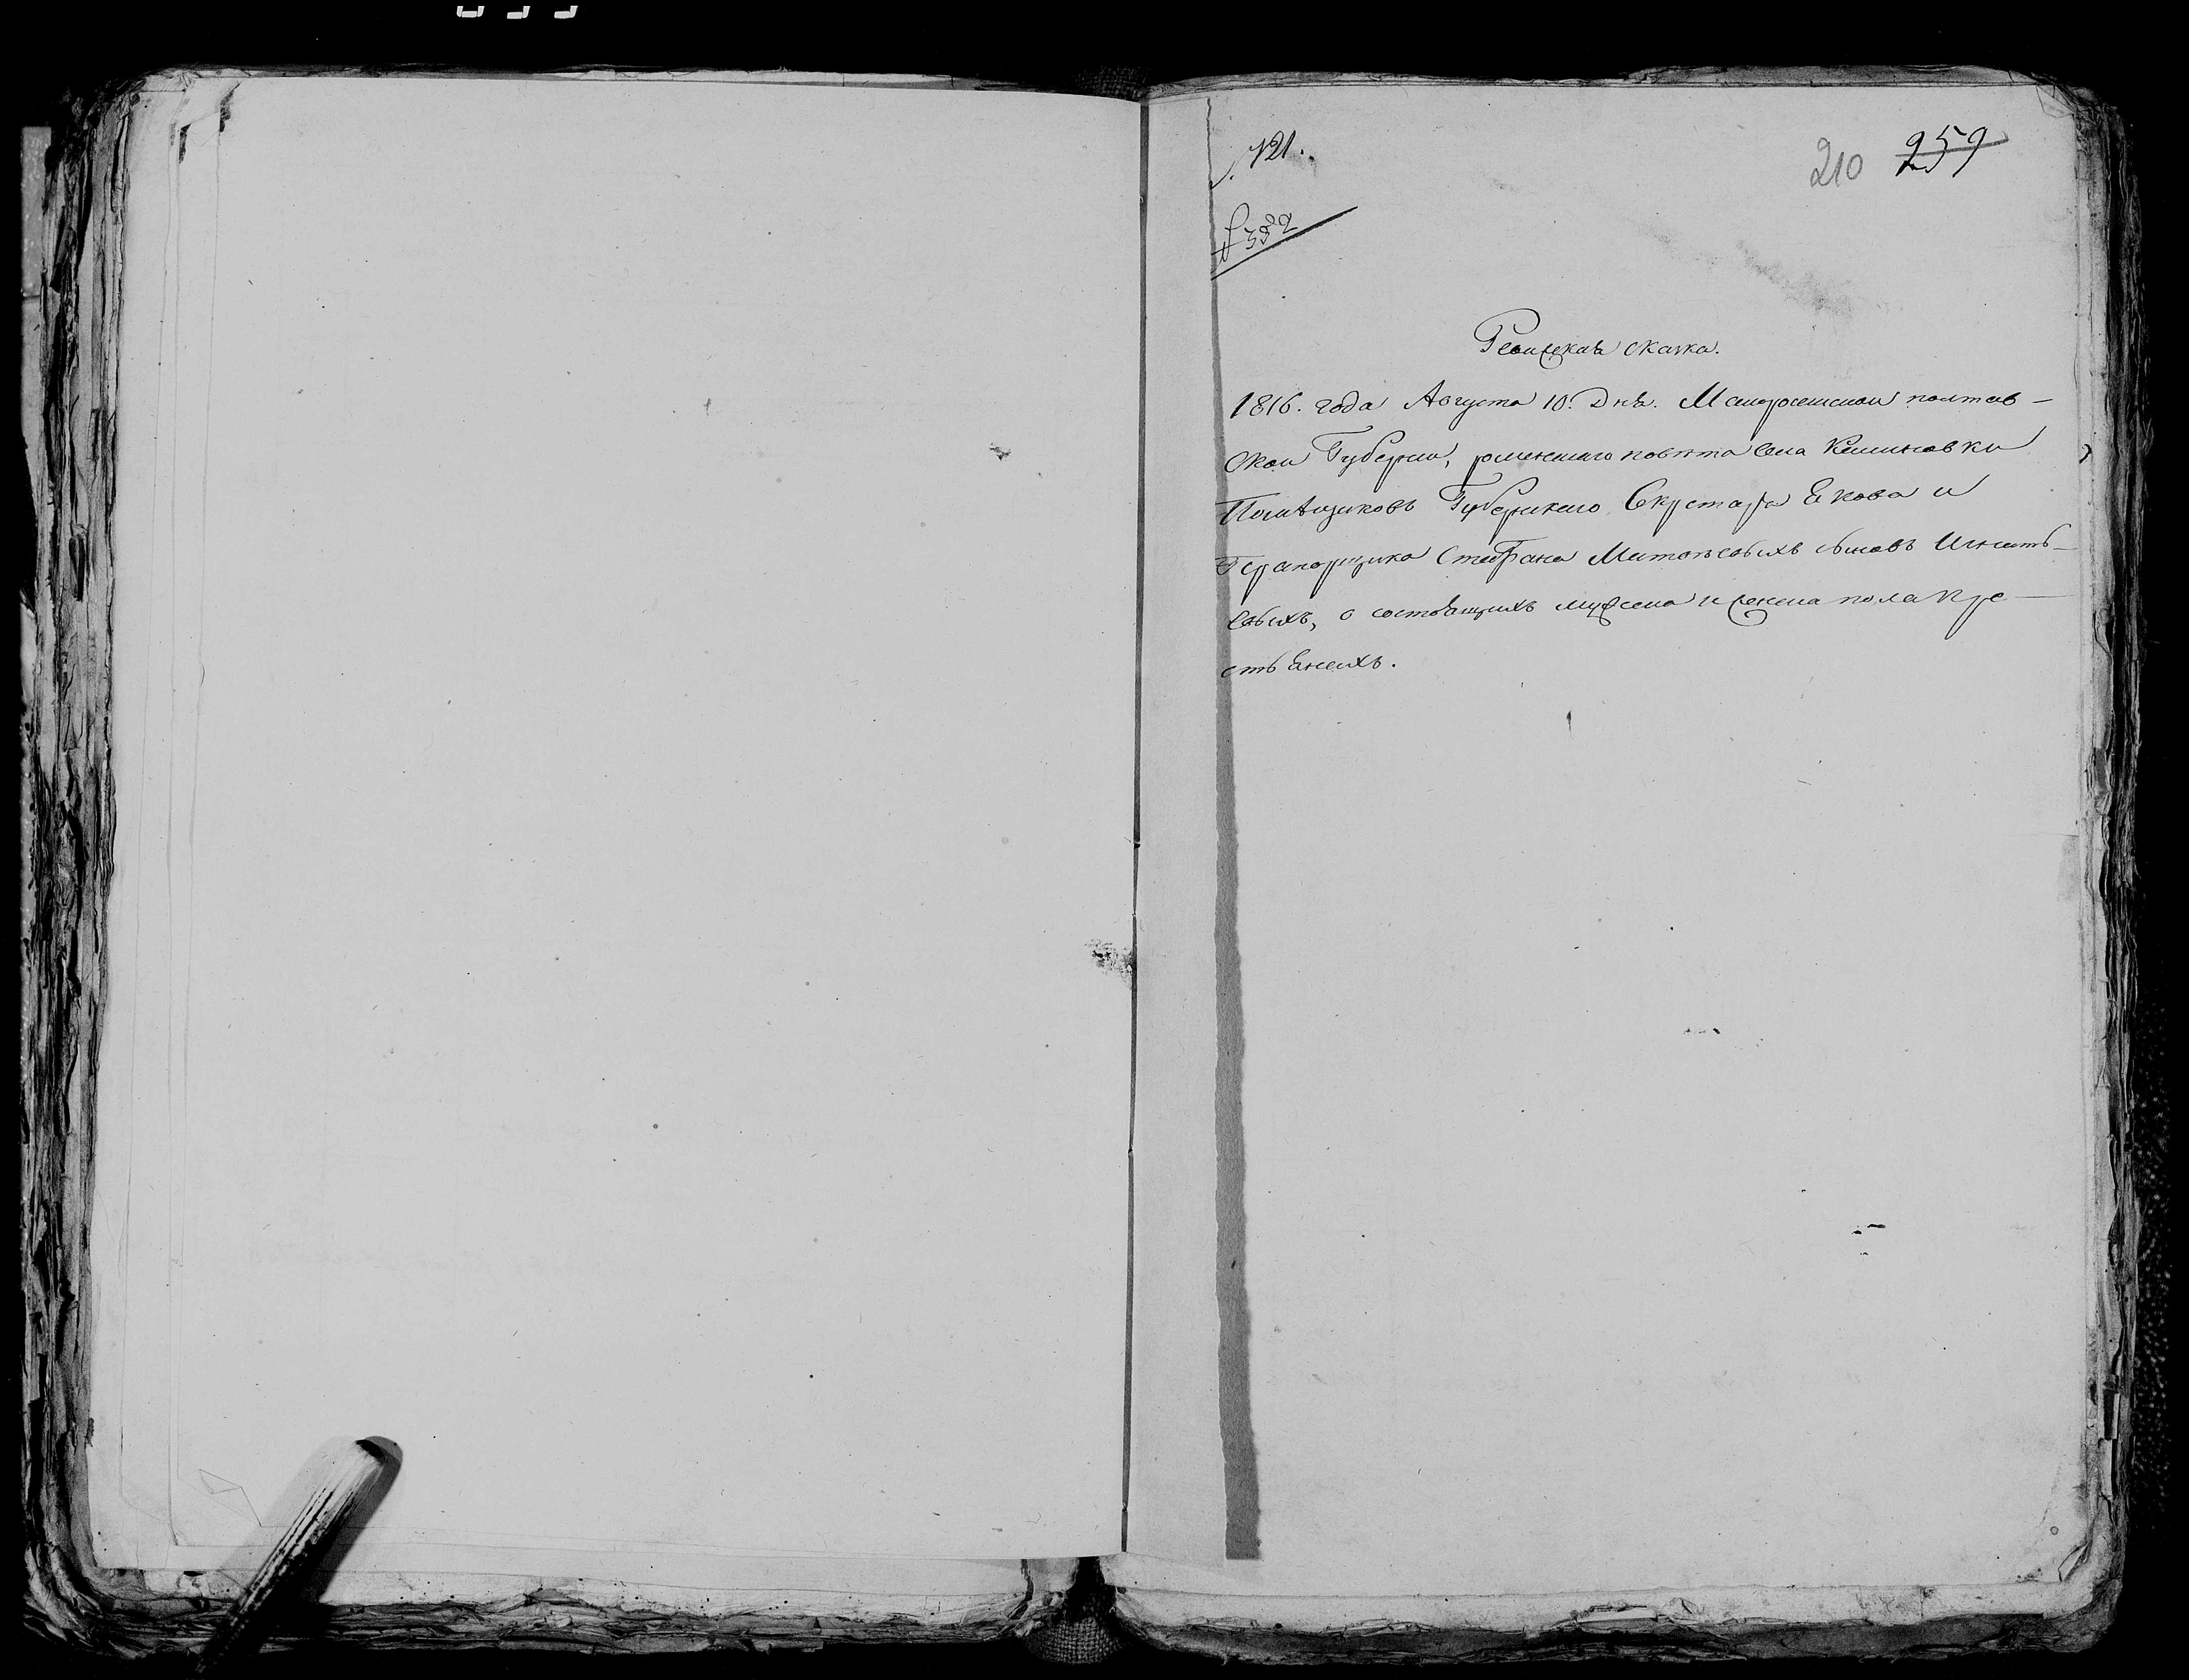 № 121.
210 259
Ревизская сказка.
1816. года Августа 10. Дня. Малоросейской полтав-
ской Губернии, роменскаго повѣта села Калиновки
Помѣщиковъ Губернскаго Секретаря Якова и
Прапорщика Стефана Матвѣевыхъ сыновъ
о состоящихъ мужеска и женска пола кре-
стьянехъ.